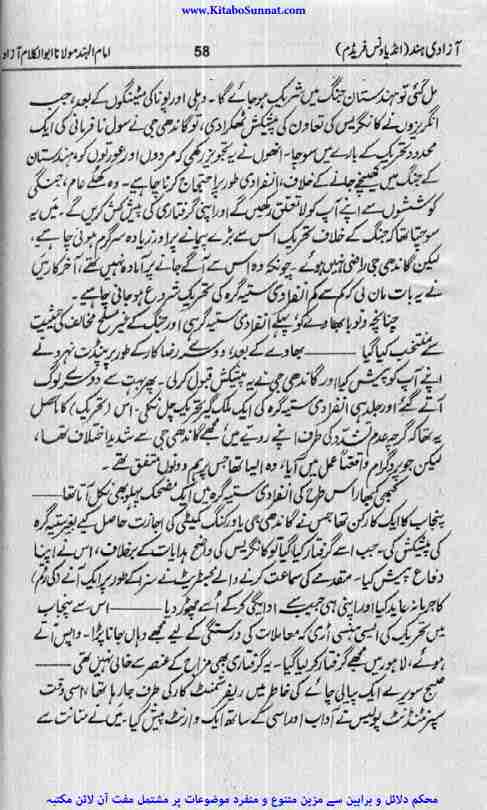 www.KitaboSunnat.com
آزادی ہند (انڈیا ونس فریڈم) 58 امام الہند مولانا ابوالکلام آزاد
مل گئی تو ہندستان جنگ میں شریک ہو جائے گا۔ دہلی اور پونا کی میٹنگوں کے بعد، جب
انگریزوں نے کانگریس کی تعاون کی پیشکش ٹھکرا دی، تو گاندھی جی نے سول نافرمانی کی ایک
محدود تحریک کے بارے میں سوچا۔ انھوں نے یہ تجویز رکھی کہ مردوں اور عورتوں کو، ہندستان
کے جنگ میں کھینچے جانے کے خلاف، انفرادی طور پر احتجاج کرنا چاہیے۔ وہ کھلے عام، جنگی
کوششوں سے اپنے آپ کو لاتعلق رکھیں گے اور اپنی گرفتاری کی پیش کش کریں گے۔ میں یہ
سوچتا تھا کہ جنگ کے خلاف تحریک اس سے بڑے پیمانے پر اور زیادہ سرگرم ہونی چاہیے،
لیکن گاندھی جی راضی نہیں ہوئے۔ چونکہ وہ اس سے آگے جانے پر آمادہ نہیں تھے، آخر کار میں
نے یہ بات مان لی کہ کم سے کم انفرادی ستیہ گرہ کی تحریک شروع ہو جانی چاہیے۔
چنانچہ ونوبا بھاوے کو پہلے انفرادی ستیہ گرہی اور جنگ کے غیر مسلح مخالف کی حیثیت
سے منتخب کیا گیا ——— بھاوے کے بعد، دوسرے رضا کار کے طور پر پنڈت نہرو نے
اپنے آپ کو پیش کیا اور گاندھی جی نے یہ پیشکش قبول کر لی۔ پھر بہت سے دوسرے لوگ
آتے گئے اور جلد ہی انفرادی ستیہ گرہ کی ایک ملک گیر تحریک چل نکلی۔ اس (تحریک) کا ماحصل
یہ تھا کہ گرچہ عدم تشدد کی طرف اپنے رویے میں، مجھے گاندھی جی سے شدید اختلاف تھا،
لیکن جو پروگرام واقعتاً عمل میں آیا، وہ ایسا تھا جس پر ہم دونوں متفق تھے۔
کبھی کبھار اس طرح کی انفرادی ستیہ گرہ میں ایک مضحک پہلو بھی نکل آتا تھا ———
پنجاب کا ایک کارکن تھا جس نے گاندھی جی یا ورکنگ کمیٹی کی اجازت حاصل کیے بغیر ستیہ گرہ
کی پیشکش کی۔ جب اسے گرفتار کیا گیا تو کانگریس کی واضح ہدایات کے برخلاف، اس نے اپنا
دفاع پیش کیا۔ مقدمے کی سماعت کرنے والے مجسٹریٹ نے سزا کے طور پر ایک آنے (کی رقم)
کا جرمانہ عاید کیا اور اپنی ہی جیب سے ادائیگی کر کے اُسے چھوڑ دیا ——— اس سے پنجاب
میں تحریک کی ایسی ہنسی اڑی کہ معاملات کی درستگی کے لیے مجھے وہاں جانا پڑا۔ واپس آتے
ہوئے، لاہور میں مجھے گرفتار کر لیا گیا۔ یہ گرفتاری بھی مزاح کے عنصر سے خالی نہیں تھی ———
صبح سویرے ایک پیالی چائے کی خاطر میں ریفرشمنٹ کار کی طرف جا رہا تھا، اسی وقت
سپرنٹنڈنٹ پولیس نے آداب اور اسی کے ساتھ ایک وارنٹ پیش کیا۔ میں نے متانت سے
محکم دلائل و براہین سے مزین متنوع و منفرد موضوعات پر مشتمل مفت آن لائن مکتبہ